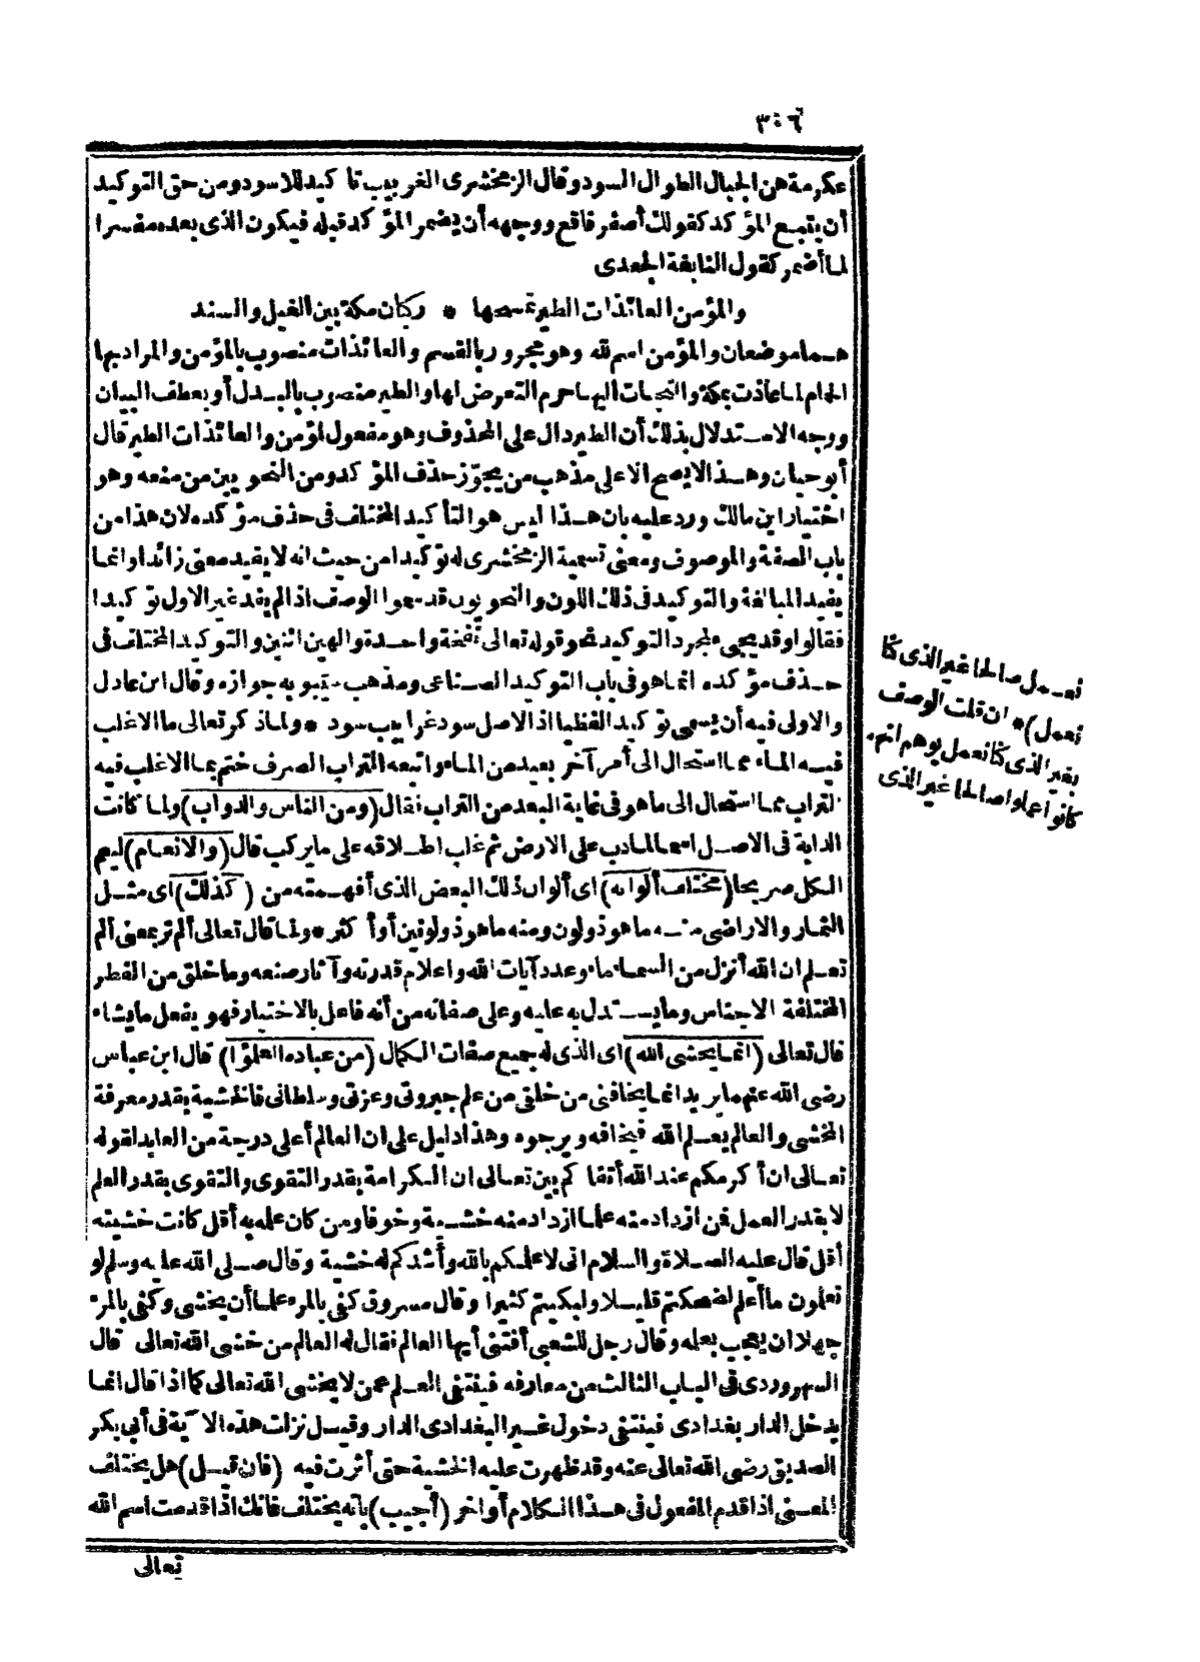 ٣٠٦
عكرمة هن الجبال الطوال السود وقال الزمخشرى الغربيب تاكيد للاسود ومن حق التوكيد
أن يتبع المؤكد كقولك أصفر فاقع ووجهه أن يضمر المؤكد قبله فيكون الذى بعده مفسرا
لما أضمر كقول النابغة الجعدى
والمؤمن العائذات الطير تمسحها * ركبان مكة بين الغيل والسند
هما موضعان والمؤمن اسم لله وهو مجرور بالقسم والعائذات منصوب بالمؤمن والمراد بها
الحمام لما عاذت بمكة والتجأت اليها حرم التعرض لها والطير منصوب بالبدل أو بعطف البيان
ووجه الاستدلال بذلك أن الطير دال على المحذوف وهو مفعول لمؤمن والعائذات الطير قال
أبو حيان وهذا لا يصح الا على مذهب من يجوّز حذف المؤكد ومن النحويين من منعه وهو
اختيار ابن مالك ورد عليه بان هذا ليس هو التأكيد المختلف فى حذف مؤكده لان هذا من
باب الصفة والموصوف ومعنى تسمية الزمخشرى له توكيدا من حيث انه لا يفيد معنى زائدا وانما
يفيد المبالغة والتوكيد فى ذلك اللون والنحويون قد سموا الوصف اذا لم يفد غير الاول توكيدا
فقالوا وقد يجىء لمجرد التوكيد نحو قوله تعالى نفخة واحدة والهين اثنين والتوكيد المختلف فى
حذف مؤكده انما هو فى باب التوكيد الصناعى ومذهب سيبويه جوازه وقال ابن عادل
والاولى فيه أن يسمى توكيد لفظيا اذ الاصل سود غرابيب سود * ولما ذكر تعالى ما الاغلب
فيه الماء مما استحال الى أمر آخر بعيد من الماء واتبعه التراب الصرف ختم بما الاغلب فيه
التراب مما استحال الى ما هو فى غاية البعد من التراب فقال (ومن الناس والدواب) ولما كانت
الدابة فى الاصل اسما لما دب على الارض ثم غلب اطلاقه على ما يركب قال (والانعام) ليعم
الكل صريحا (مختلف ألوانه) اى ألوان ذلك البعض الذى أفهمته من (كذلك) اى مثل
الثمار والاراضى منه ما هو ذو لون ومنه ما هو ذو لونين أو أكثر * ولما قال تعالى ألم تر بمعنى ألم
تعلم ان الله أنزل من السماء ماء وعدد آيات الله واعلام قدرته وآثار صنعه وما خلق من الفطر
المختلفة الاجناس وما يستدل به عليه وعلى صفاته من أنه فاعل بالاختيار فهو يفعل ما يشاء
قال تعالى (انما يخشى الله) اى الذى له جميع صفات الكمال (من عباده العلمؤا) قال ابن عباس
رضى الله عنهما يريد انما يخافنى من خلقى من علم جبروتى وعزتى وسلطانى فالخشية بقدر معرفة
المخشى والعالم يعلم الله فيخافه ويرجوه وهذا دليل على ان العالم أعلى درجة من العابد لقوله
تعالى ان أكرمكم عند الله أتقاكم بين تعالى ان الكرامة بقدر التقوى والتقوى بقدر العلم
لا بقدر العمل فمن ازداد منه علما ازداد منه خشية وخوفا ومن كان علمه به أقل كانت خشيته
أقل قال عليه الصلاة والسلام انى لاعلمكم بالله وأشدكم له خشية وقال صلى الله عليه وسلم لو
تعلمون ما أعلم لضحكتم قليلا ولبكيتم كثيرا وقال مسروق كفى بالمرء علما أن يخشى وكفى بالمرء
جهلا ان يعجب بعلمه وقال رجل للشعبى أفتنى أيها العالم فقال له العالم من خشى الله تعالى قال
السهروردى فى الباب الثالث من معارفه فينتفى العلم عمن لا يخشى الله تعالى كما اذا قال انما
يدخل الدار بغدادى فينتفى دخول غير البغدادى الدار وقيل نزلت هذه الآية فى أبى بكر
الصديق رضى الله تعالى عنه وقد ظهرت عليه الخشية حتى أثرت فيه (فان قيل) هل يختلف
المعنى اذا قدم المفعول فى هذا الكلام أو اخر (أجيب) بأنه يختلف فانك اذا قدمت اسم الله
تعالى
نعمل صالحا غير الذى كنا
نعمل) * ان قلت الوصف
بغير الذى كنا نعمل يوهم انهم
كانوا عملوا صالحا غير الذى